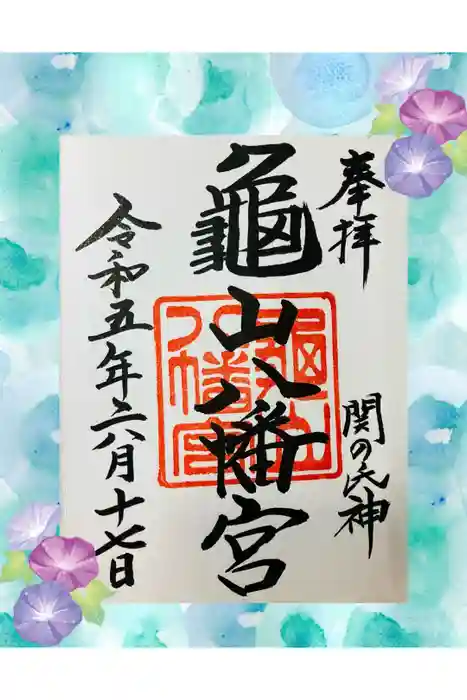 奉拝
関の氏神
龜山八幡宮
令和五年六月十七日
龜山
八幡宮